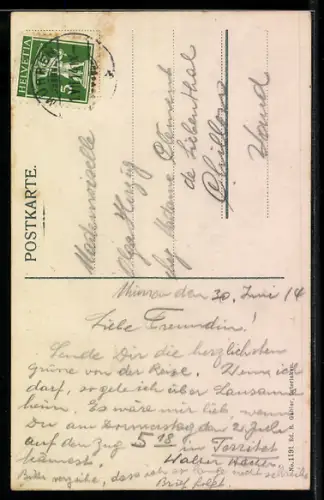 HELVETIA
5
POSTKARTE.
Mademoiselle
Olga Herzig
chez Madame Clement
de Liebenthal
Chillon
Vaud
den 30. Juni 14
Liebe Freundin!
Sende Dir die herzlichsten
Grüsse von der Reise. Wenn ich
darf, so gehe ich über Lausanne
heim. Es wäre mir lieb, wenn
Du am Donnerstag den 2. Juli
auf den Zug 5 18 in Territet
kämest. Walter
Bitte verzeihe, dass ich so lange nicht schreibe
Brief folgt.
No. 1191 Ed. R. Gabler, Interlaken.